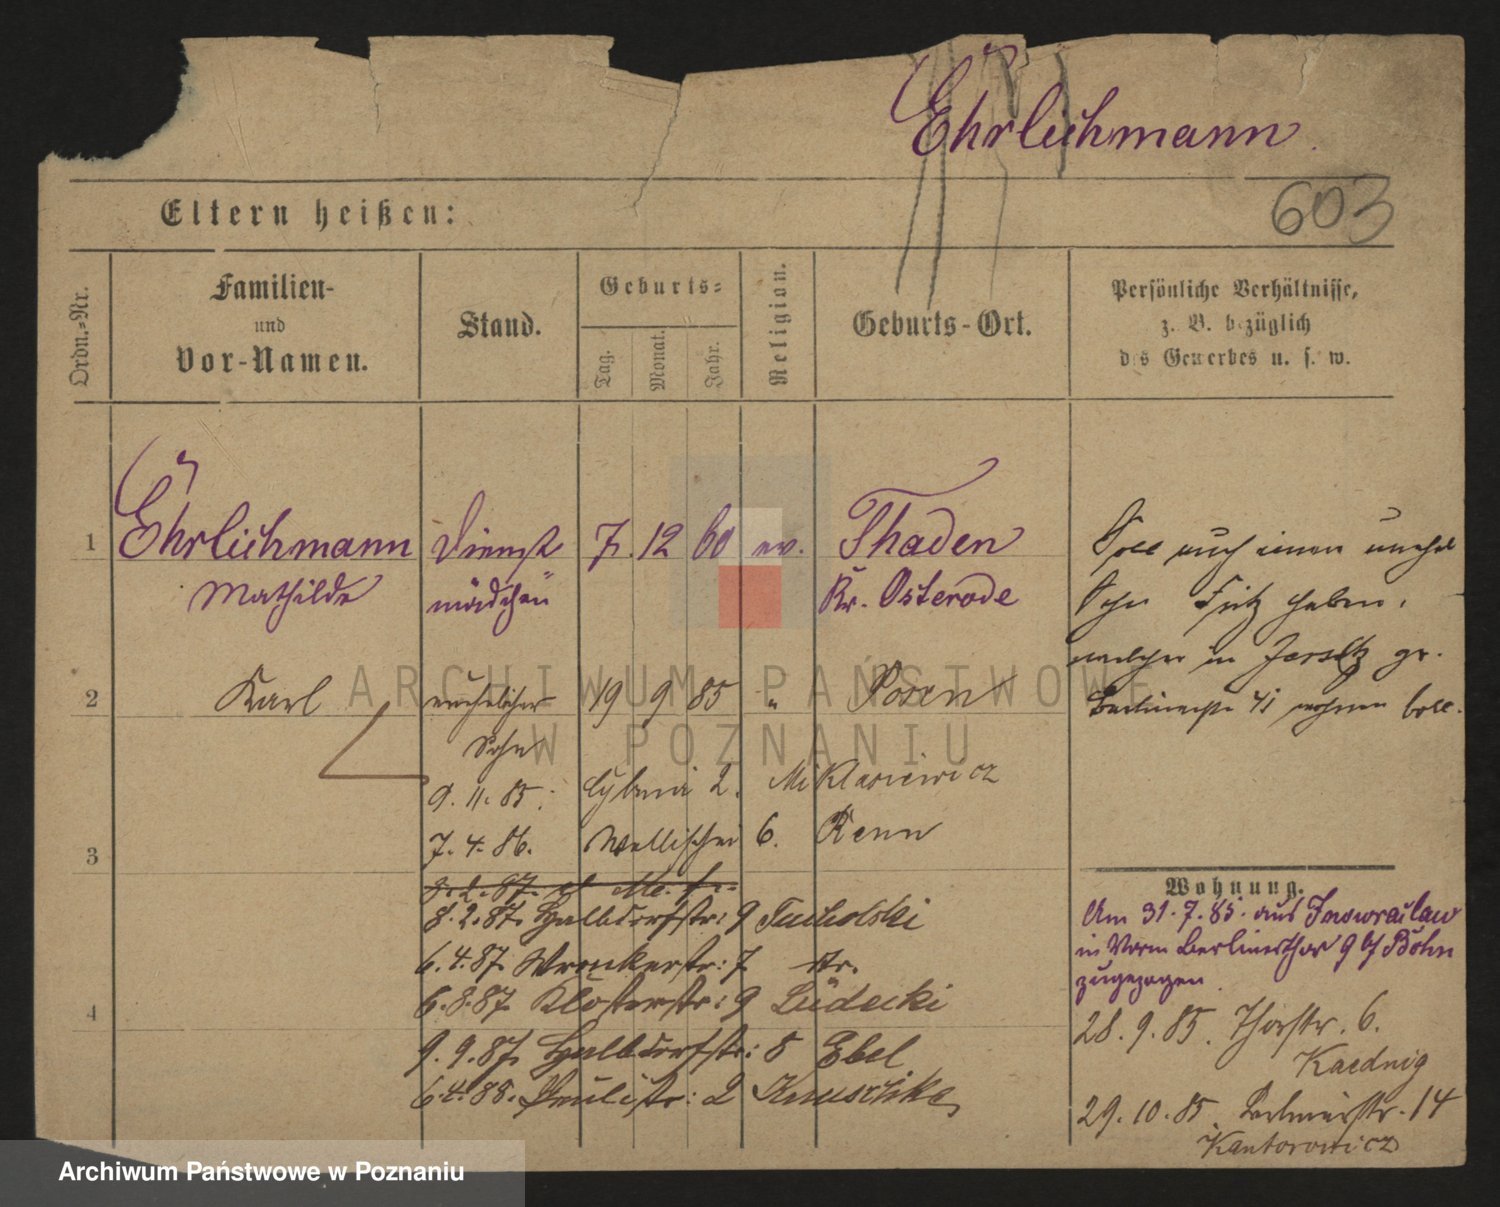 Ehrlichmann.
603
Eltern heißen:
Ordn.-Nr.
Familien-
und
Vor-Namen.
Stand.
Geburts-
Tag.
Monat.
Jahr.
Religion.
Geburts-Ort.
Persönliche Verhältnisse,
z. B. bezüglich
des Gewerbes u. s. w.
1 Ehrlichmann Dienst 7. 12 60 ev. Thaden
Mathilde mädchen Kr. Osterode
Soll auch einen unehel
Sohn Fritz haben,
welcher in Jersitz gr.
Berlinerstr 41 wohnen soll.
2 Karl unehelicher 19 9 85 " Posen
Sohn
9. 11. 85. Cybina 2. Miklasiewicz
7. 4. 86. Wallischei 6. Renn
3
8. 2. 87. Halbdorfstr: 9 Tucholski
6. 4. 87. Wronkerstr: 7 str.
6. 8. 87. Klosterstr: 9 Lüdecki
4
9. 9. 87. Halbdorfstr: 8 Ebel
6. 4. 88. Paulistr: 2 Knuschke
Wohnung.
Am 31. 7. 85. aus Inowraclaw
in Vorm Berlinerthor 9 b/ Böhn
zugezogen.
28. 9. 85. Thorstr. 6.
Kaednig
29. 10. 85. 14
Kantorowicz
ARCHIWUM PAŃSTWOWE
W POZNANIU
Archiwum Państwowe w Poznaniu